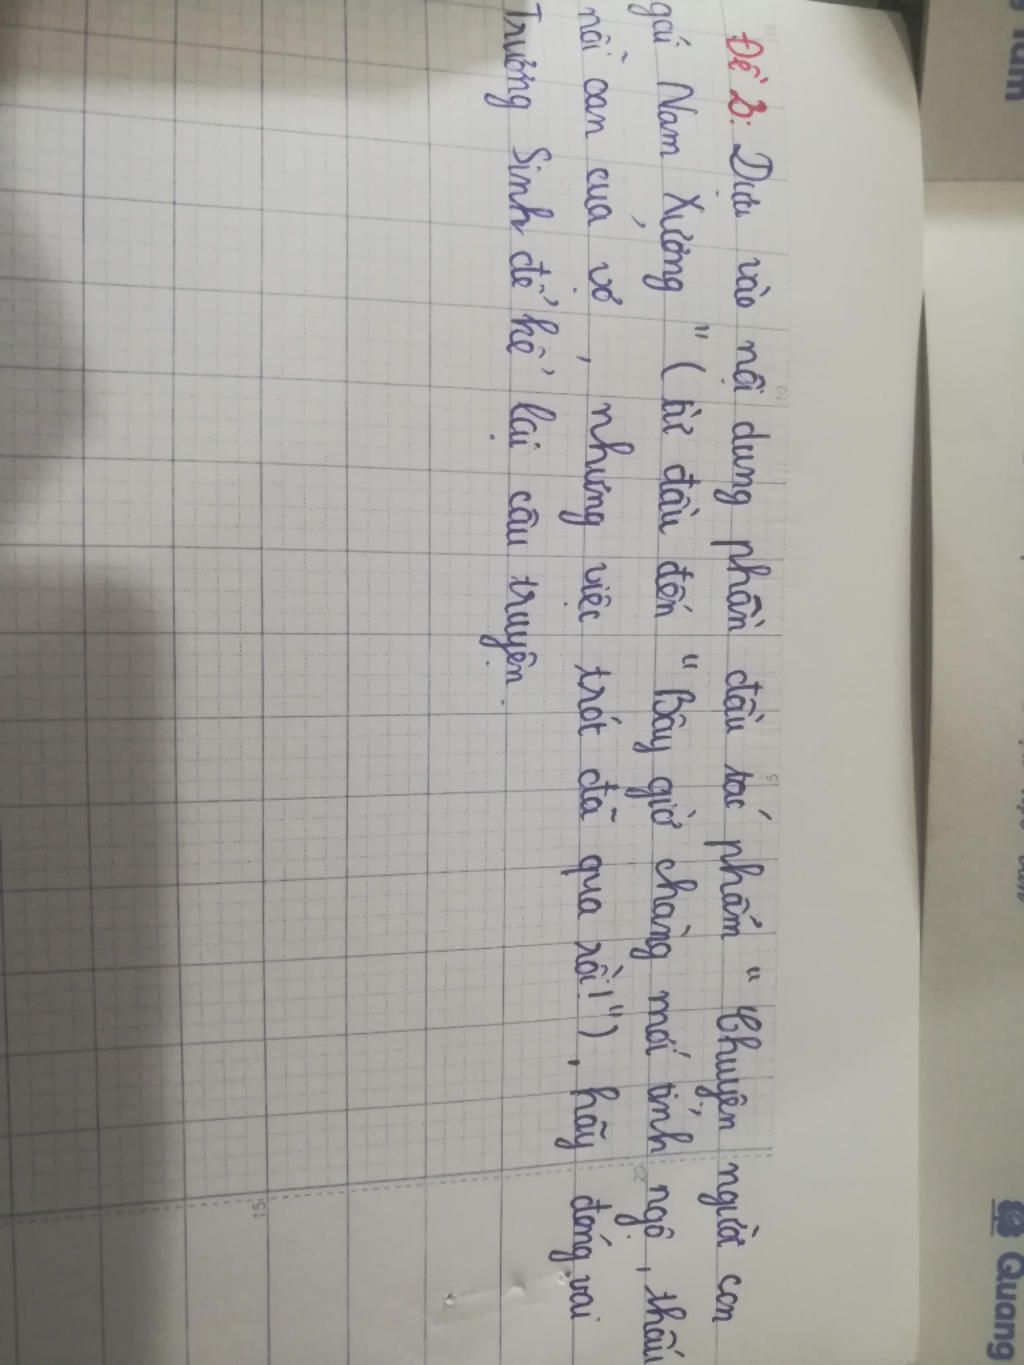 Đề 2: Dựa vào nội dung phần đầu tác phẩm "Chuyện người con
gái Nam Xương" (từ đầu đến "Bây giờ chàng mới tỉnh ngộ, thấu
nỗi oan của vợ, nhưng việc trót đã qua rồi!"), hãy đóng vai
Trương Sinh để kể lại câu truyện.
5
20
15
Quang